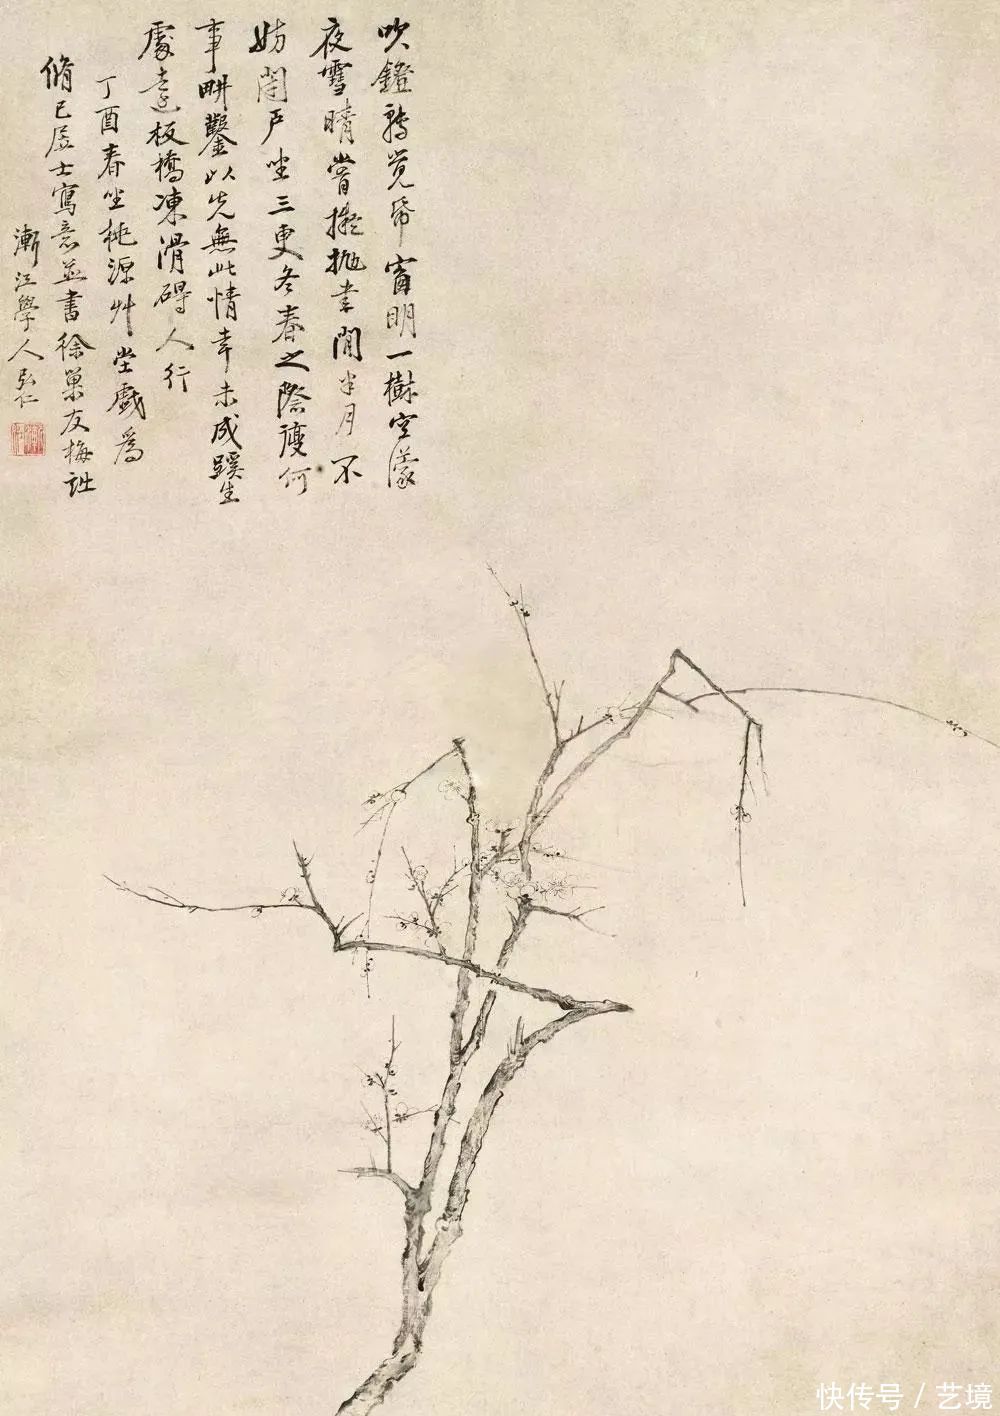 吹鐙轉覺帋窗明一樹空濛
夜雪晴嘗擬拋書閒半月不
妨閉戶坐三更冬春之際復何
事畊鑿以先無此情幸未成蹊生
處遠板橋凍滑碍人行
丁酉春坐桃源艸堂戲為
脩已居士寫意並書徐巢友梅詠
漸江學人弘仁
快传号 / 艺境